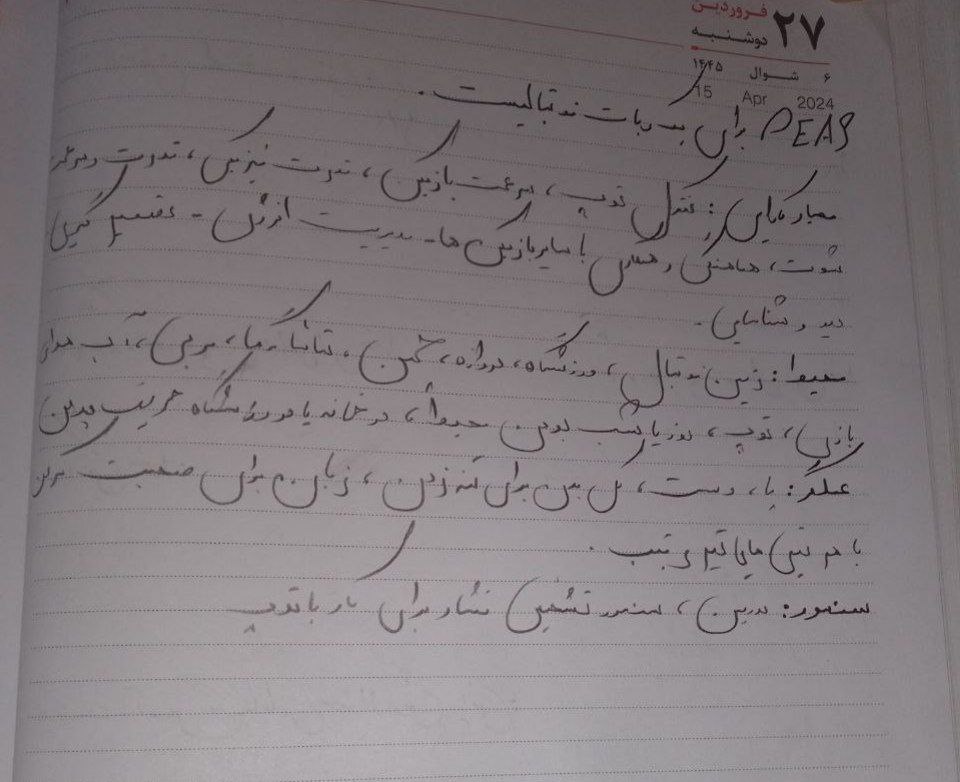 ۲۷ فروردین
دوشنبه
۶ شوال ۱۴۴۵
2024 Apr 15
PEAS برای یک ربات فوتبالیست.
معیار کارایی: کنترل توپ، سرعت بازیکن، قدرت فیزیکی، قدرت و دقت
شوت، هماهنگی و همکاری با سایر بازیکن ها - مدیریت انرژی -
دید و شناسایی.
محیط: زمین فوتبال، ورزشگاه، دروازه، چمن، تماشاگرها، مربی، آب هوای
بازی، توپ، روز یا شب بودن محیط، در خانه یا در ورزشگاه حریف بودن
عملگر: پا، دست، برای تنه زدن، زبان برای صحبت کردن
با هم تیمی های تیم
سنسور: دوربین، سنسور تشخیص فشار برای کار با توپ